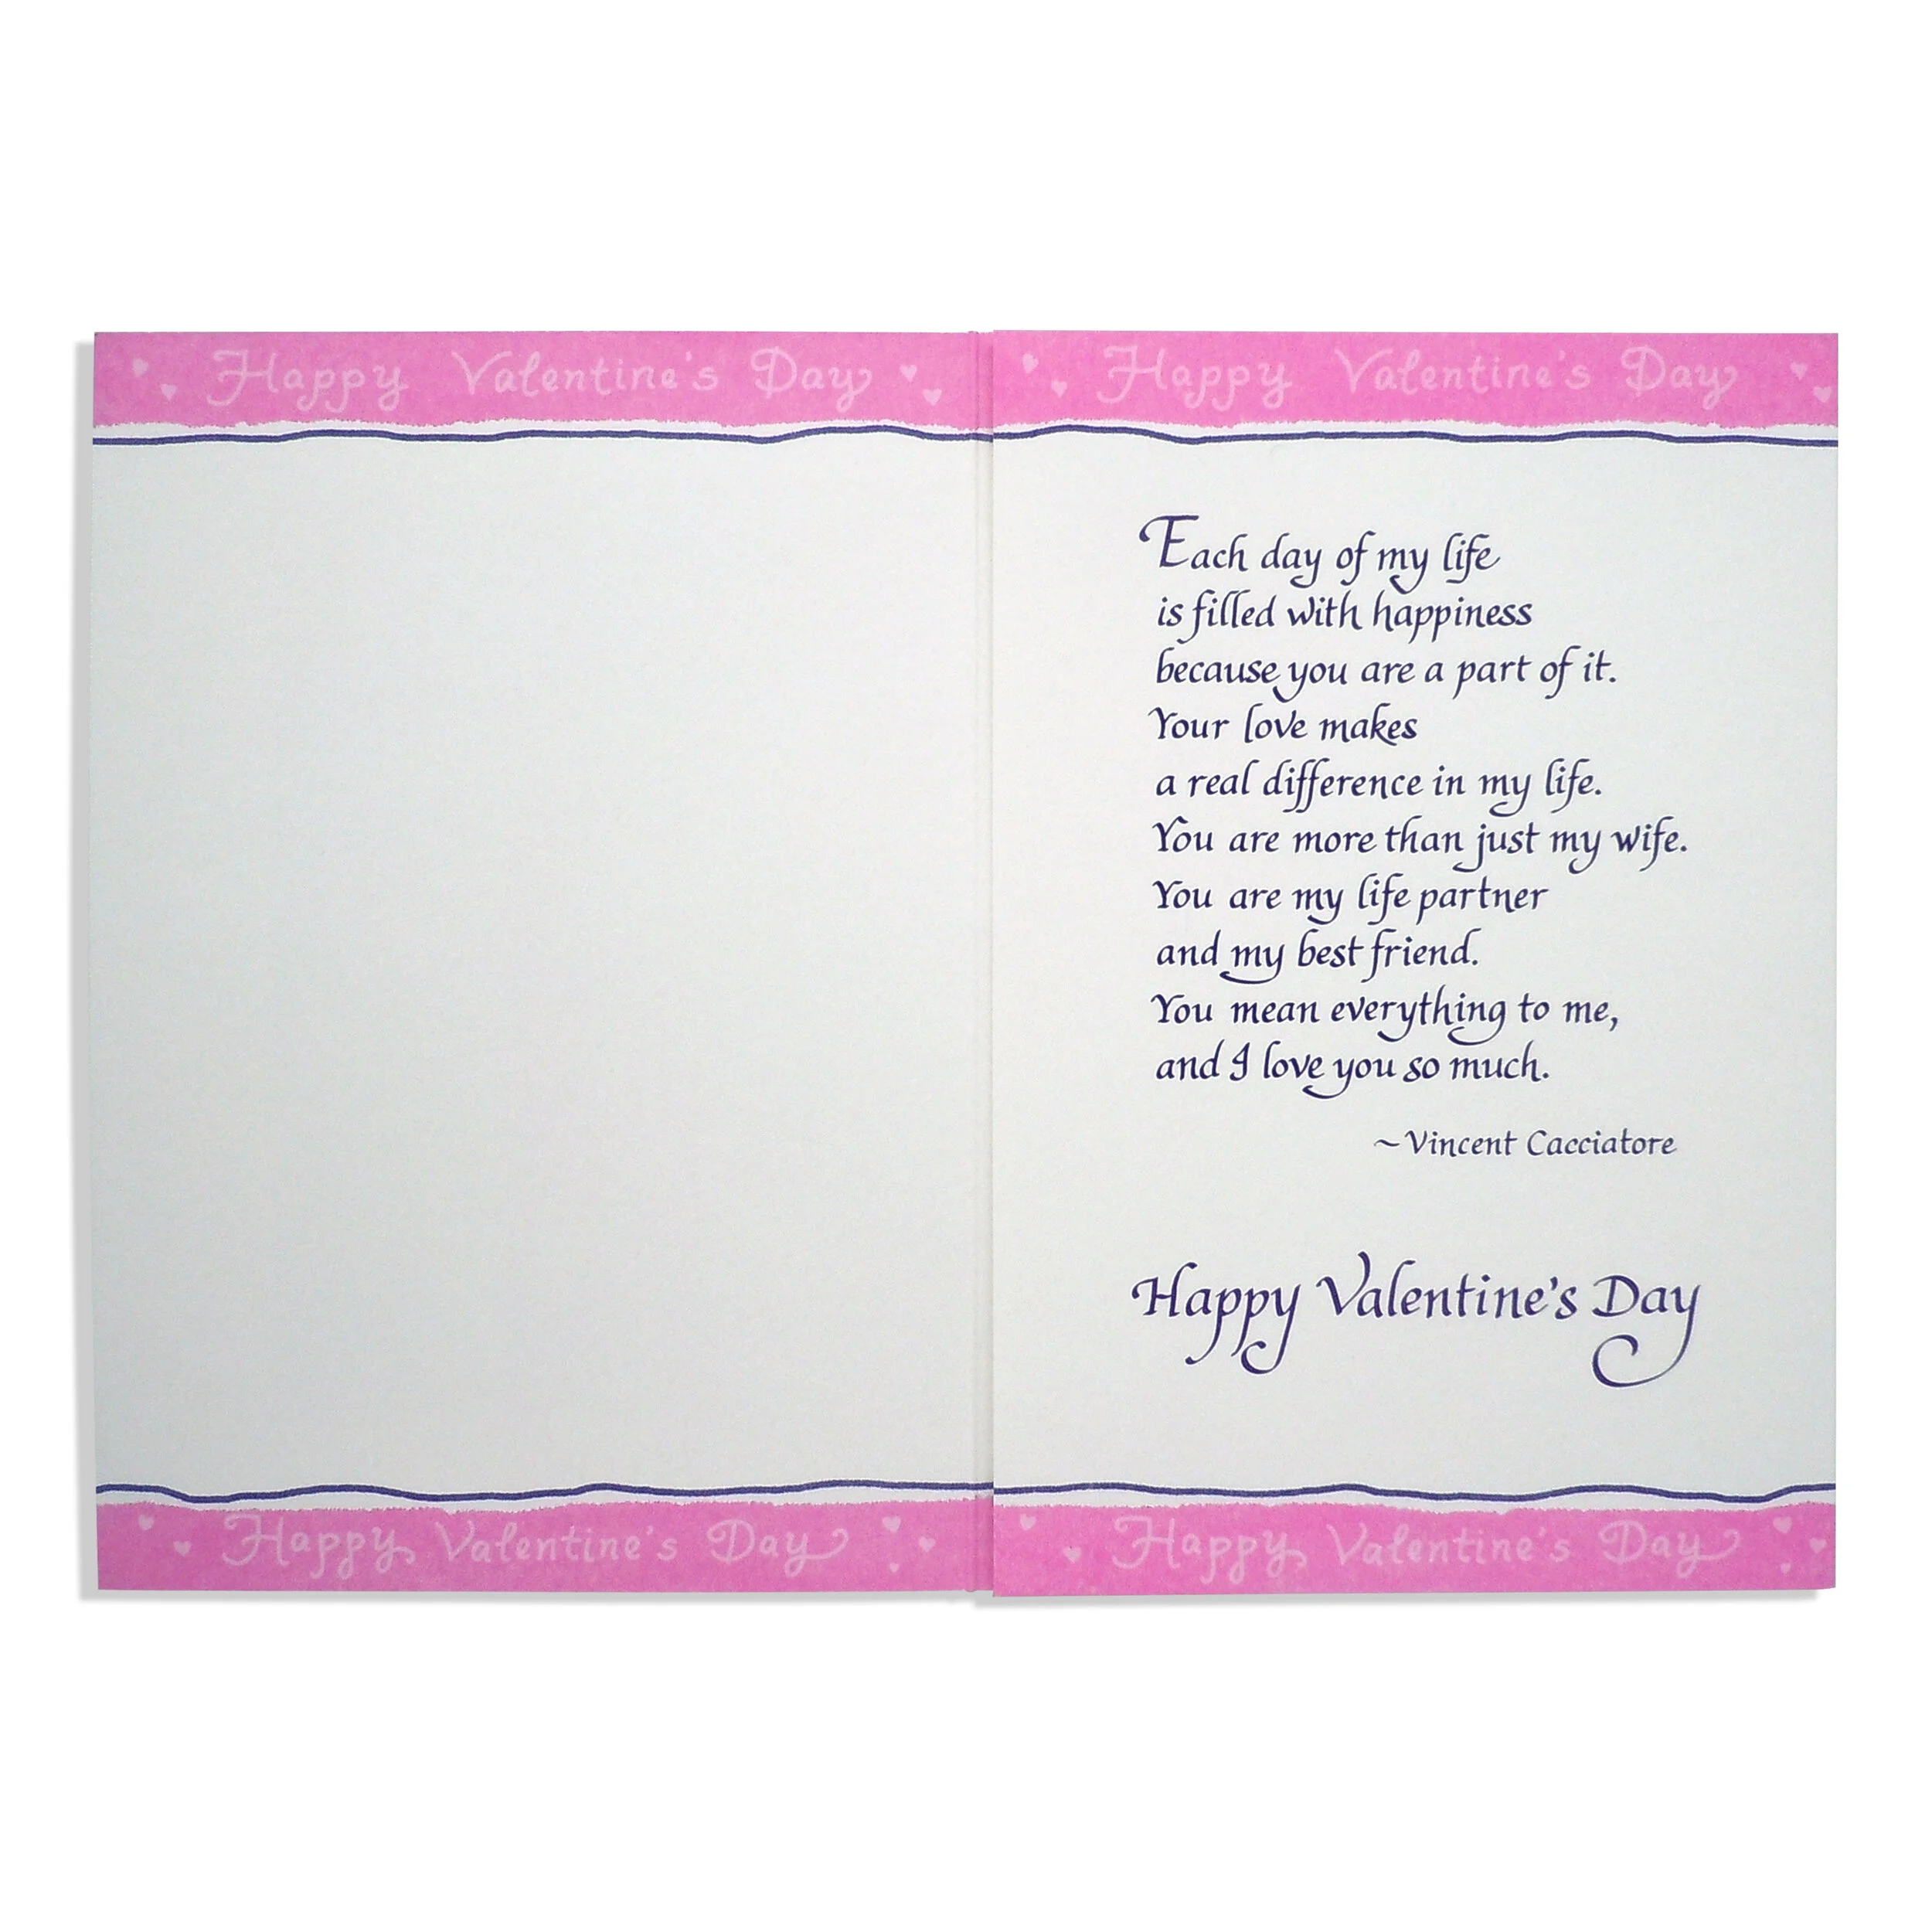 Happy Valentine's Day
Happy Valentine's Day
Each day of my life
is filled with happiness
because you are a part of it.
Your love makes
a real difference in my life.
You are more than just my wife.
You are my life partner
and my best friend.
You mean everything to me,
and I love you so much.
~Vincent Cacciatore
Happy Valentine's Day
Happy Valentine's Day
Happy Valentine's Day